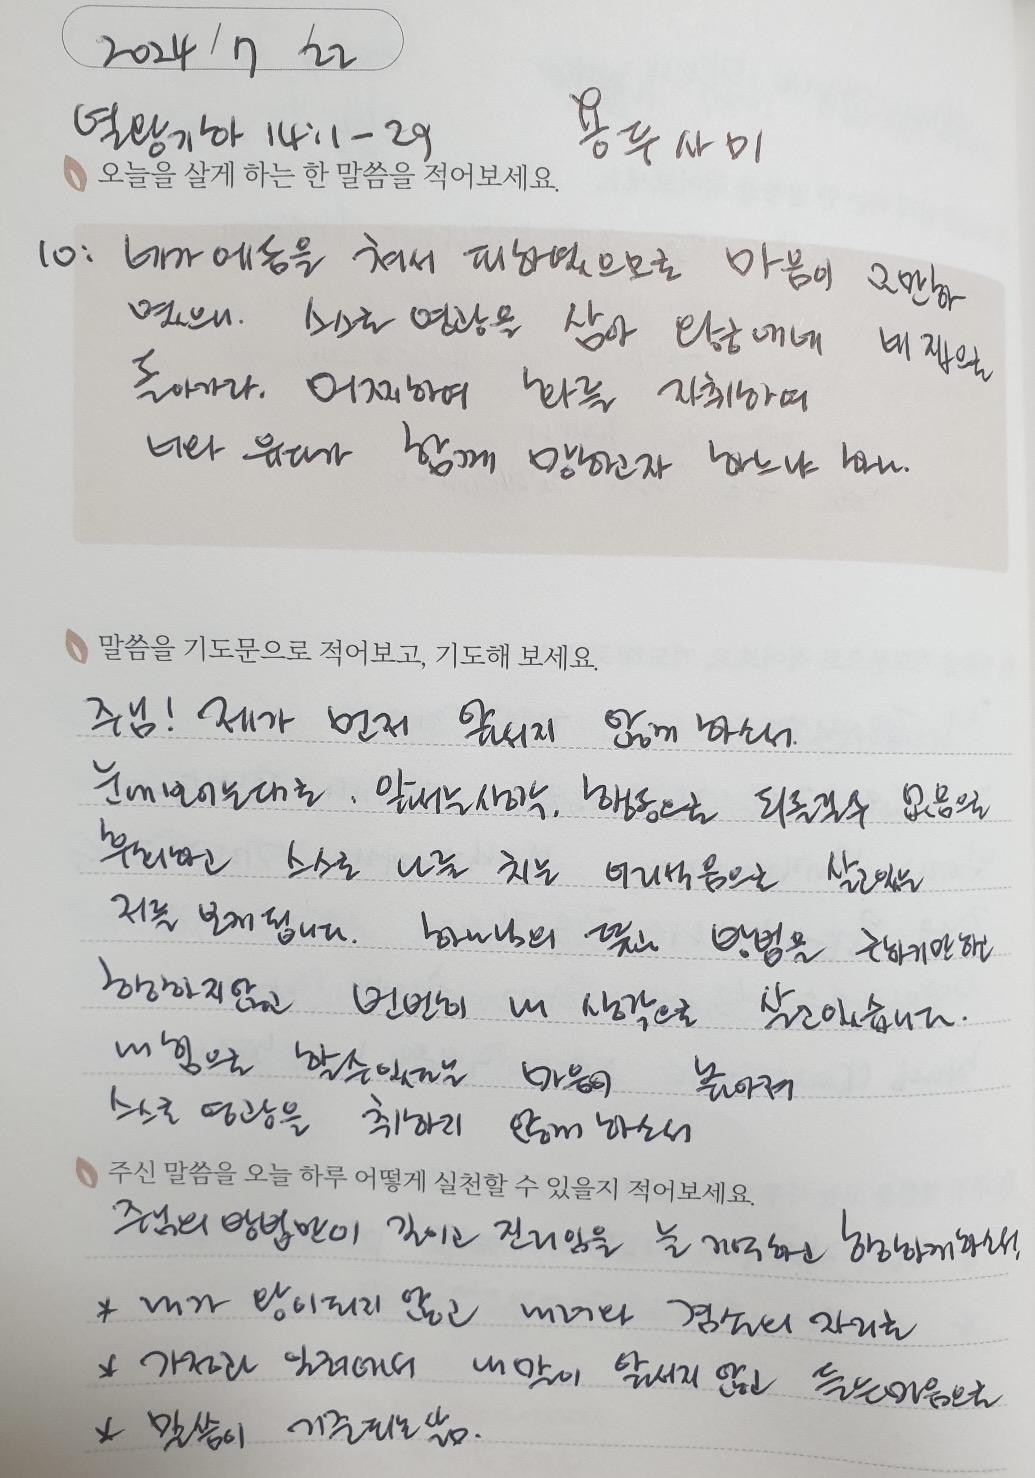 2024/7/22
열왕기하 14:1-29 용두사미
오늘을 살게 하는 한 말씀을 적어보세요.
10: 네가 에돔을 쳐서 파하였으므로 마음이 교만하
였으니. 스스로 영광을 삼아 왕궁에네 네 집으로
돌아가라. 어찌하여 화를 자취하여
너와 유다가 함께 망하고자 하느냐 하니.
말씀을 기도문으로 적어보고, 기도해 보세요.
주님! 제가 먼저 앞서지 않게 하소서.
눈에보이는대로, 앞서는 생각, 행동으로 되돌릴수 없음으로
후회하고 스스로 나를 치는 어리석음으로 살고있는
저를 보게 됩니다. 하나님의 뜻과 방법을 구하기만하고
행하지않고 번번히 내 생각으로 살고있습니다.
내 힘으로 할수있다는 마음이 높아져
스스로 영광을 취하리 않게 하소서
주신 말씀을 오늘 하루 어떻게 실천할 수 있을지 적어보세요.
주님의 방법만이 길이고 진리임을 늘 기억하고 행하게하소서.
* 내가 왕이되지 않고 내려와 겸손의 자리로
* 가정과 일터에서 내말이 앞서지 않고 듣는마음으로
* 말씀이 기준되는 삶.